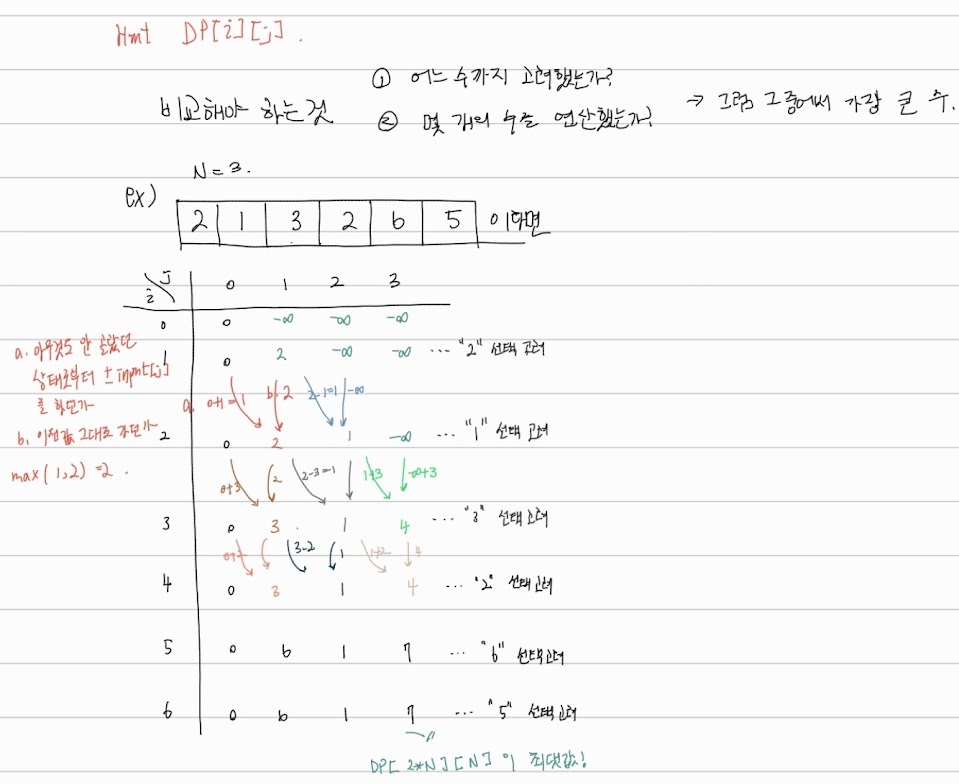 Hint DP[i][j].
① 어느 수까지 고려했는가?
비교해야 하는 것
② 몇 개의 수를 연산했는가?
→ 그럼 그중에서 가장 큰 수.
N=3.
ex)
2 1 3 2 6 5 이라면
i j 0 1 2 3
0 0 -∞ -∞ -∞
1 0 2 -∞ -∞ ... "2" 선택 고려
a. 아무것도 안 골랐던
상태로부터 ± input[j]
를 하던가
b. 이전값 그대로 가던가
max(1,2) = 2.
a. 0+1=1 b. 2 2-1=1 -∞
2 0 2 1 -∞ ... "1" 선택 고려
0+3 2 2-3=-1 1+3 -∞+3
3 0 3 1 4 ... "3" 선택고려
3-2 1 1+2 4
4 0 3 1 4 ... "2" 선택고려
5 0 6 1 7 ... "6" 선택고려
6 0 6 1 7 ... "5" 선택고려
DP[2*N][N] 이 최댓값!